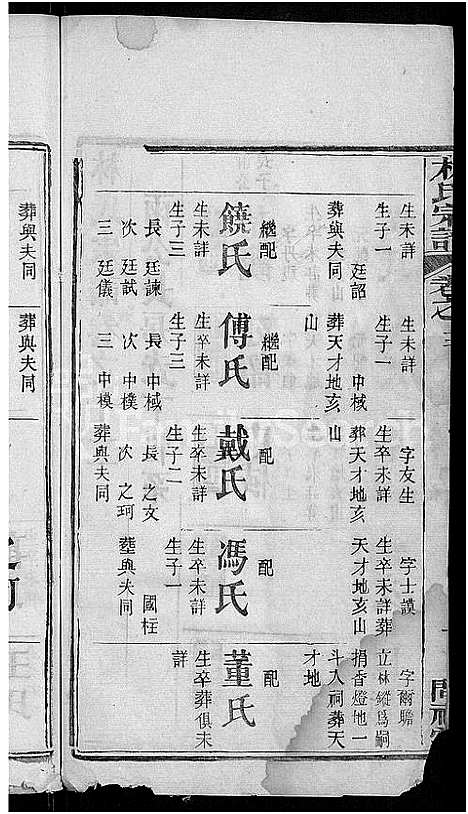 林氏宗譜 卷之
生未詳
生子一
廷詔
葬與夫同
繼配
饒氏
生未詳
生子三
長 廷諫
次 廷試
三 廷儀
生未詳
生子一
中棫
葬天才地亥
山
繼配
傅氏
生卒未詳
生子三
長 中棫
次 中樸
三 中模
字友生
生卒未詳
葬天才地亥
山
配
戴氏
生卒未詳
生子二
長 之文
次 之珂
葬與夫同
字士謨
生卒未詳葬
天才地亥山
配
馮氏
生卒未詳
生子一
國柱
塟與夫同
字爾瞻
立林鏦爲嗣
捐香燈地一
斗入祠葬天
才地
配
董氏
生卒葬俱未
詳
葬與夫同
葬與夫同